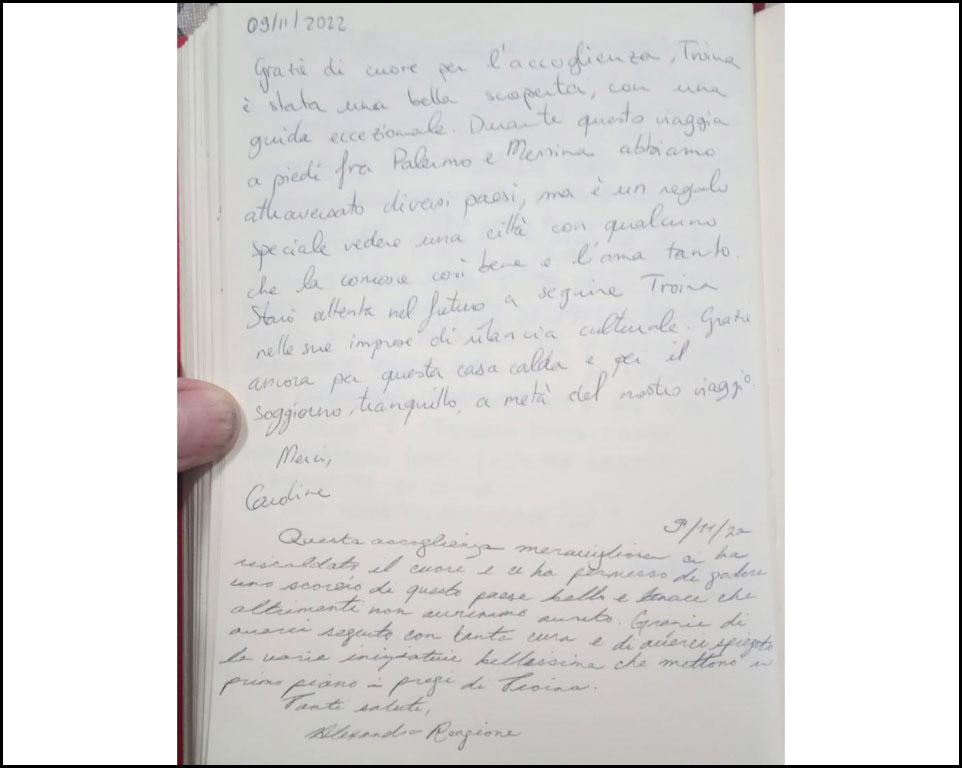 09/11/2022
Gratie di cuore per l'accoglienza, Troina
è stata una bella scoperta, con una
guida eccezionale. Durante questo viaggia
a piedi fra Palermo e Messina abbiamo
attraversato diversi paesi, ma è un regalo
speciale vedere una città con qualcuno
che la conosce così bene e l'ama tanto.
Starò attenta nel futuro a seguire Troina
nelle sue imprese di rilancia culturale. Gratie
ancora per questa casa calda e per il
soggiorno, tranquillo, a metà del nostro viaggio.
Merci,
9/11/22
Questa accoglienza meravigliosa ci ha
riscaldato il cuore e ci ha permesso di godere
uno scorcio di questo paese bello e tenace che
altrimenti non avremmo avuto. Grazie di
averci seguito con tanta cura e di averci spiegato
le varie iniziative bellissima che mettono in
primo piano i pregi di Troina.
Tanti saluti,
Alexandra Rongione